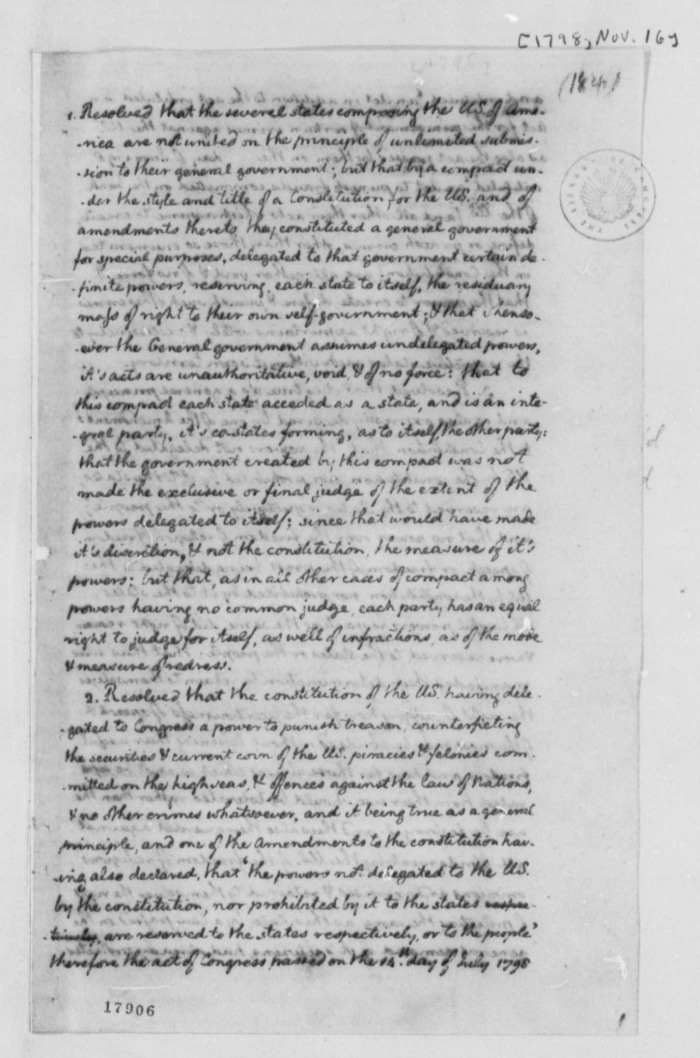 [1798, Nov. 16]
(184)
THE LIBRARY OF CONGRESS
1. Resolved that the several states composing the U.S. of Ame-
-rica are not united on the principle of unlimited submis-
-sion to their general government; but that by a compact un-
-der the style and title of a Constitution for the U.S. and of
amendments thereto, they constituted a general government
for special purposes, delegated to that government certain de-
-finite powers, reserving, each state to itself, the residuary
mass of right to their own self-government; & that whenso-
-ever the General government assumes undelegated powers,
it's acts are unauthoritative, void & of no force: that to
this compact each state acceded as a state, and is an inte-
-gral party, it's co-states forming, as to itself, the other party:
that the government created by this compact was not
made the exclusive or final judge of the extent of the
powers delegated to itself; since that would have made
it's discretion, & not the constitution, the measure of it's
powers: but that, as in all other cases of compact among
powers having no common judge, each party has an equal
right to judge for itself, as well of infractions, as of the mode
& measure of redress.
2. Resolved that the constitution of the US. having dele-
-gated to Congress a power to punish treason, counterfieting
the securities & current coin of the US. piracies & felonies com-
-mitted on the high seas, & offences against the law of Nations,
& no other crimes whatsoever, and it being true as a general
principle, and one of the Amendments to the constitution hav-
-ing also declared, that 'the powers not delegated to the US.
by the constitution, nor prohibited by it to the states respec-
-tively, are reserved to the states respectively, or to the people'
therefore the act of Congress passed on the 14th day of July 1798
17906